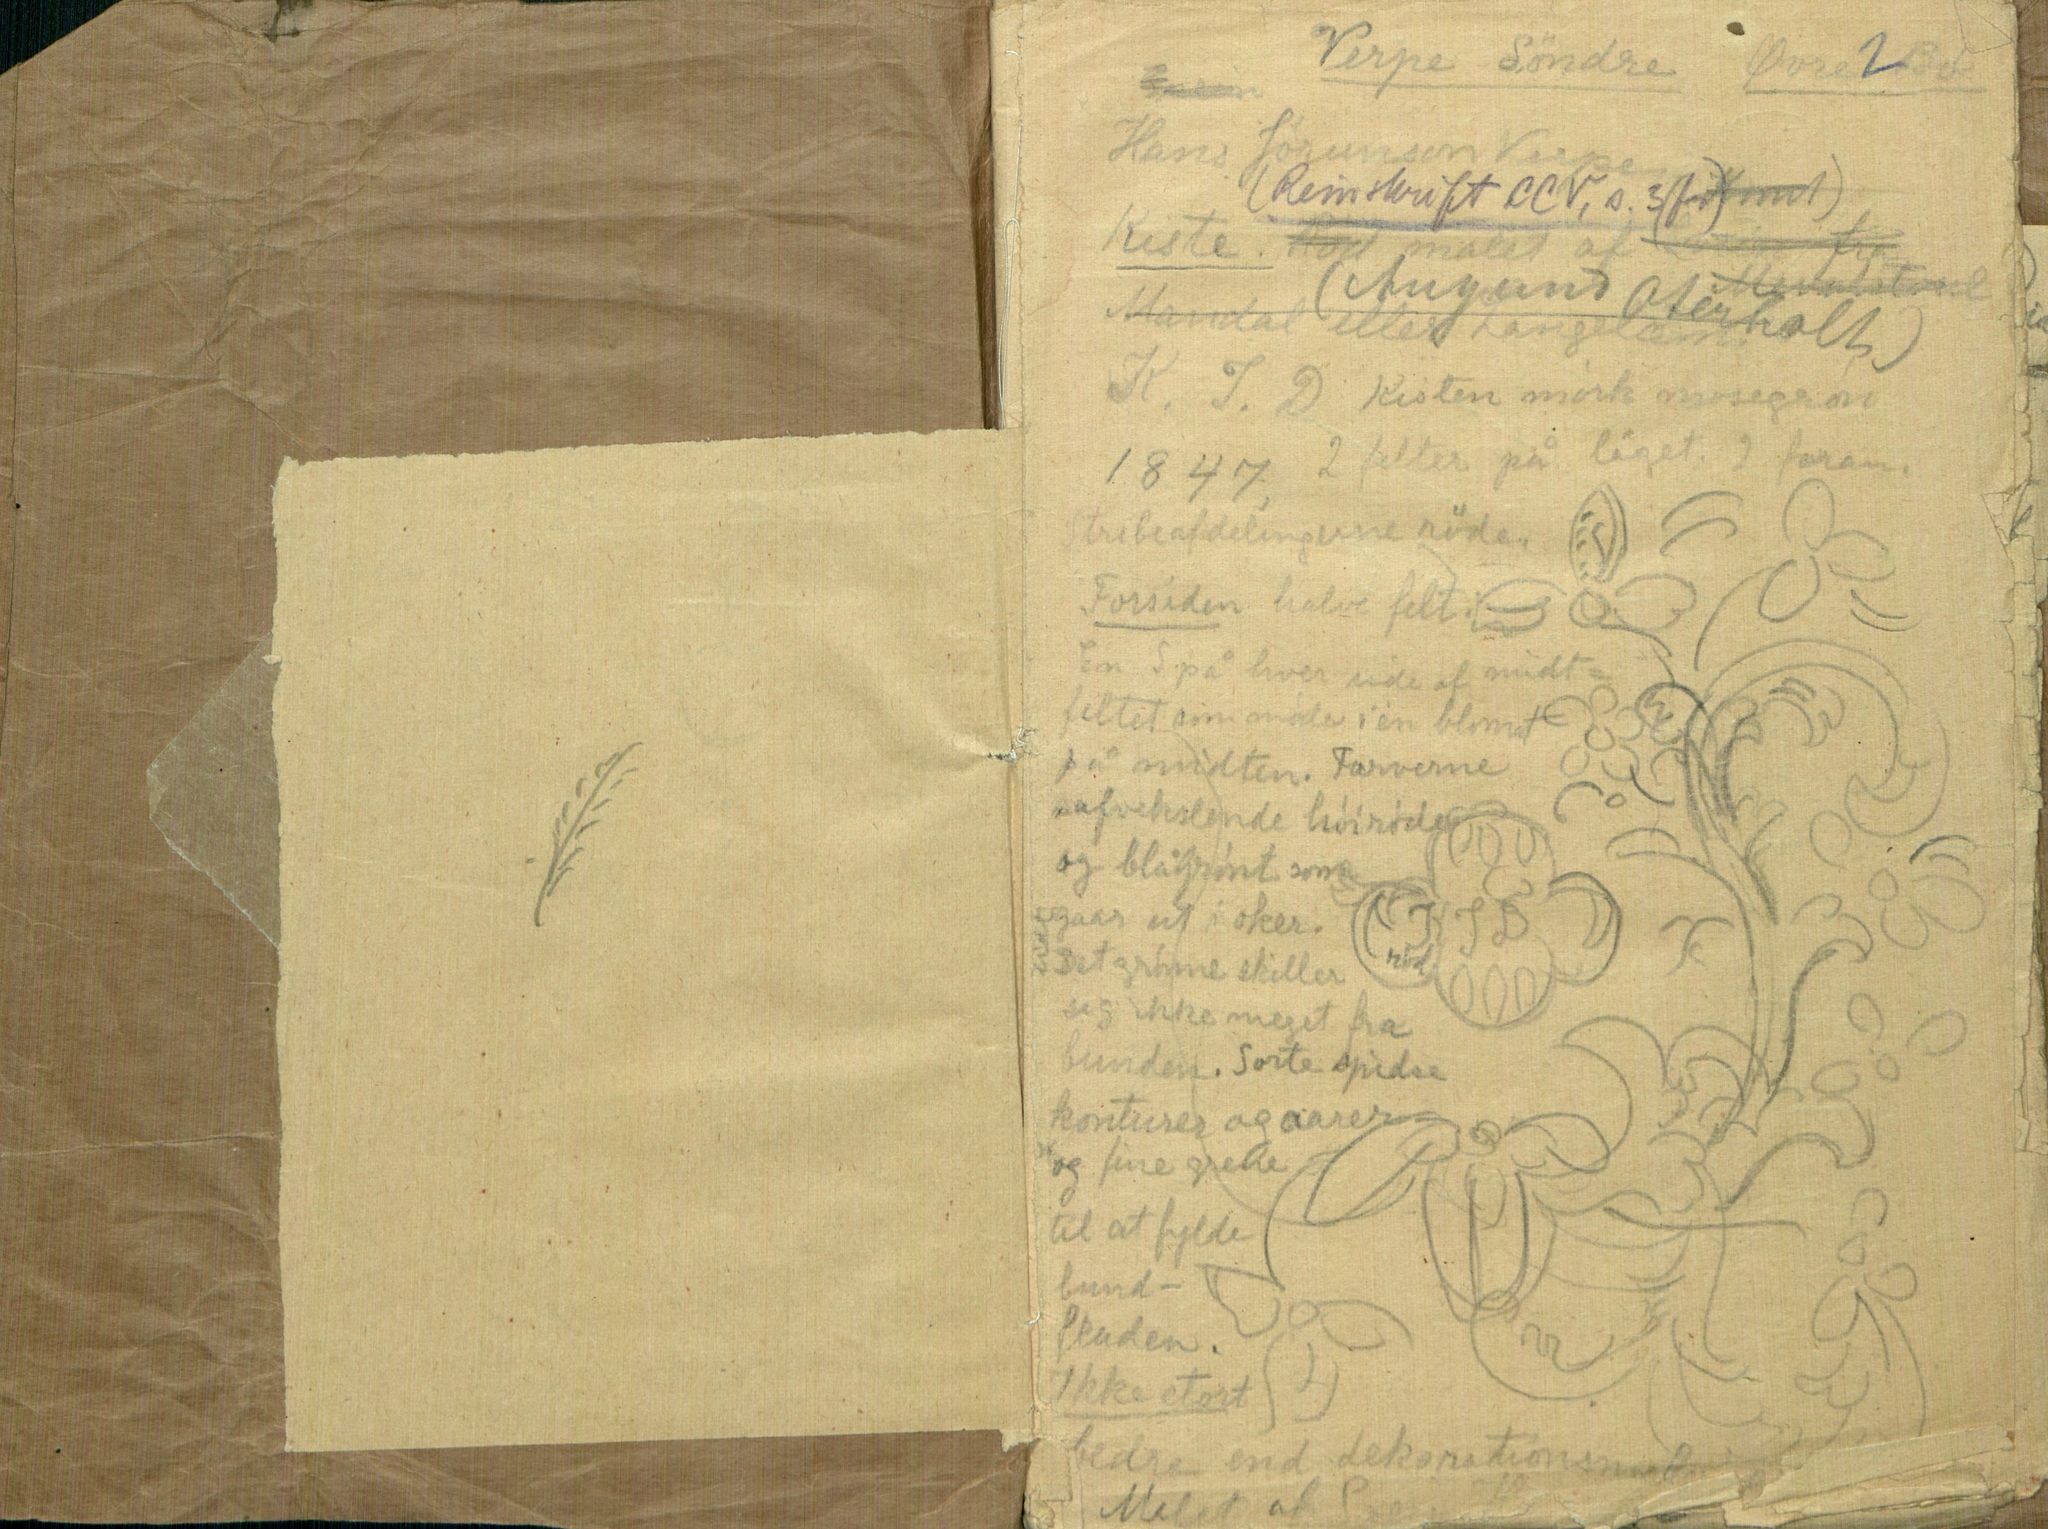 Verpe Söndre Øvre Bö
2
Hans Jörunson Verpe
(Reinskrift CCV, s. 3 ff)
Kiste. malet af
(Augund Oterholt)
Mandal eller
K. J. D Kisten mörk mosegrön
1847, 2 felter på låget. 2 foran.
Stribeafdelingerne röde.
Forsiden halve felt:
En S på hver side af midt=
feltet som möder i en blomst
på midten. Farverne
afvekslende höiröde
og blågrönt som
gaar ut i oker.
Det grönne skiller
sig ikke meget fra
bunden. Sorte spidse
konturer og aarer
og fine grene
til at fylde
bund-
fladen.
Ikke stort
bedre end dekorations
Malet af
K J D
röd